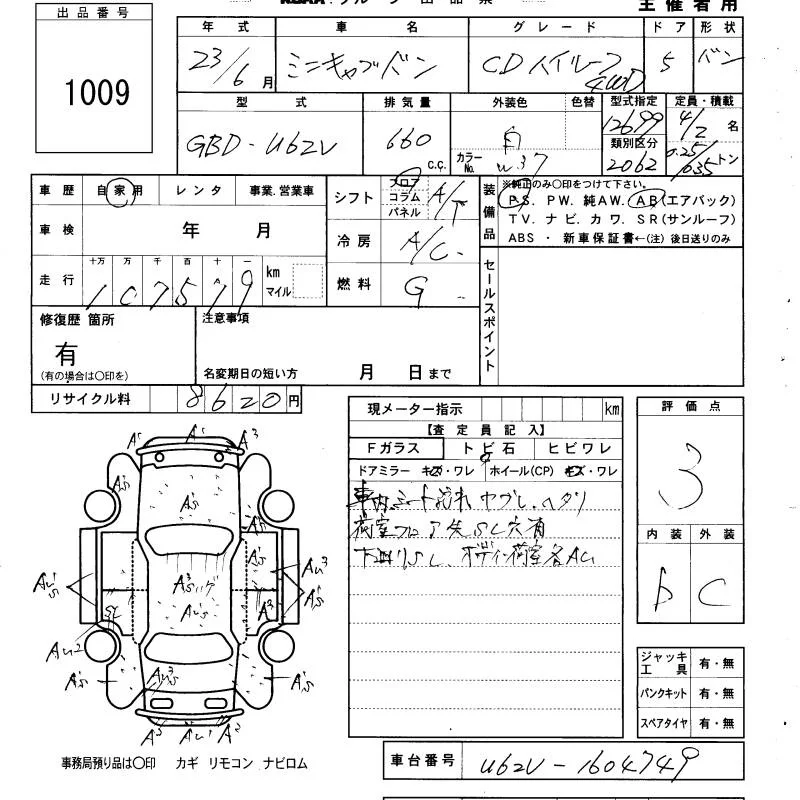 出品番号
1009
主催者用
年式 車名 グレード ドア 形状
23/6月 ミニキャブバン CDハイルーフ 4WD 5 バン
型式 排気量 外装色 色替 型式指定 定員・積載
GBD-U62V 660 C.C. 白 カラーNo. W37 12699 4/2名
類別区分 2062 0.25/0.35トン
車歴 自家用 レンタ 事業.営業車
シフト フロア コラム パネル A/T
装備品 ※純正のみ○印をつけて下さい。
PS. PW. 純AW. AB(エアバック)
TV. ナビ. カワ. SR(サンルーフ)
ABS ・ 新車保証書←(注) 後日送りのみ
車検 年 月
冷房 A/C
走行 十万 万 千 百 十 一
107579 km マイル
燃料 G
セールスポイント
修復歴 箇所 注意事項
有
(有の場合は○印を) 名変期日の短い方 月 日まで
リサイクル料 8620円
現メーター指示 km
【査定員記入】
Fガラス トビ石 ヒビワレ
ドアミラー キズ・ワレ ホイール(CP) キズ・ワレ
車内シート汚れ ヤブレ.ヘタリ
荷室フロア失SL穴有
評価点
3
内装 外装
b C
A's A's A3
A's
A's
A's
A3's ハゲ
Au's
Au's
Au3
A's
A3
Au2
A's
Au3's
A's
A3 Au1 A3
ジャッキ工具 有・無
パンクキット 有・無
スペアタイヤ 有・無
事務局預り品は○印 カギ リモコン ナビロム
車台番号 U62V-1604749